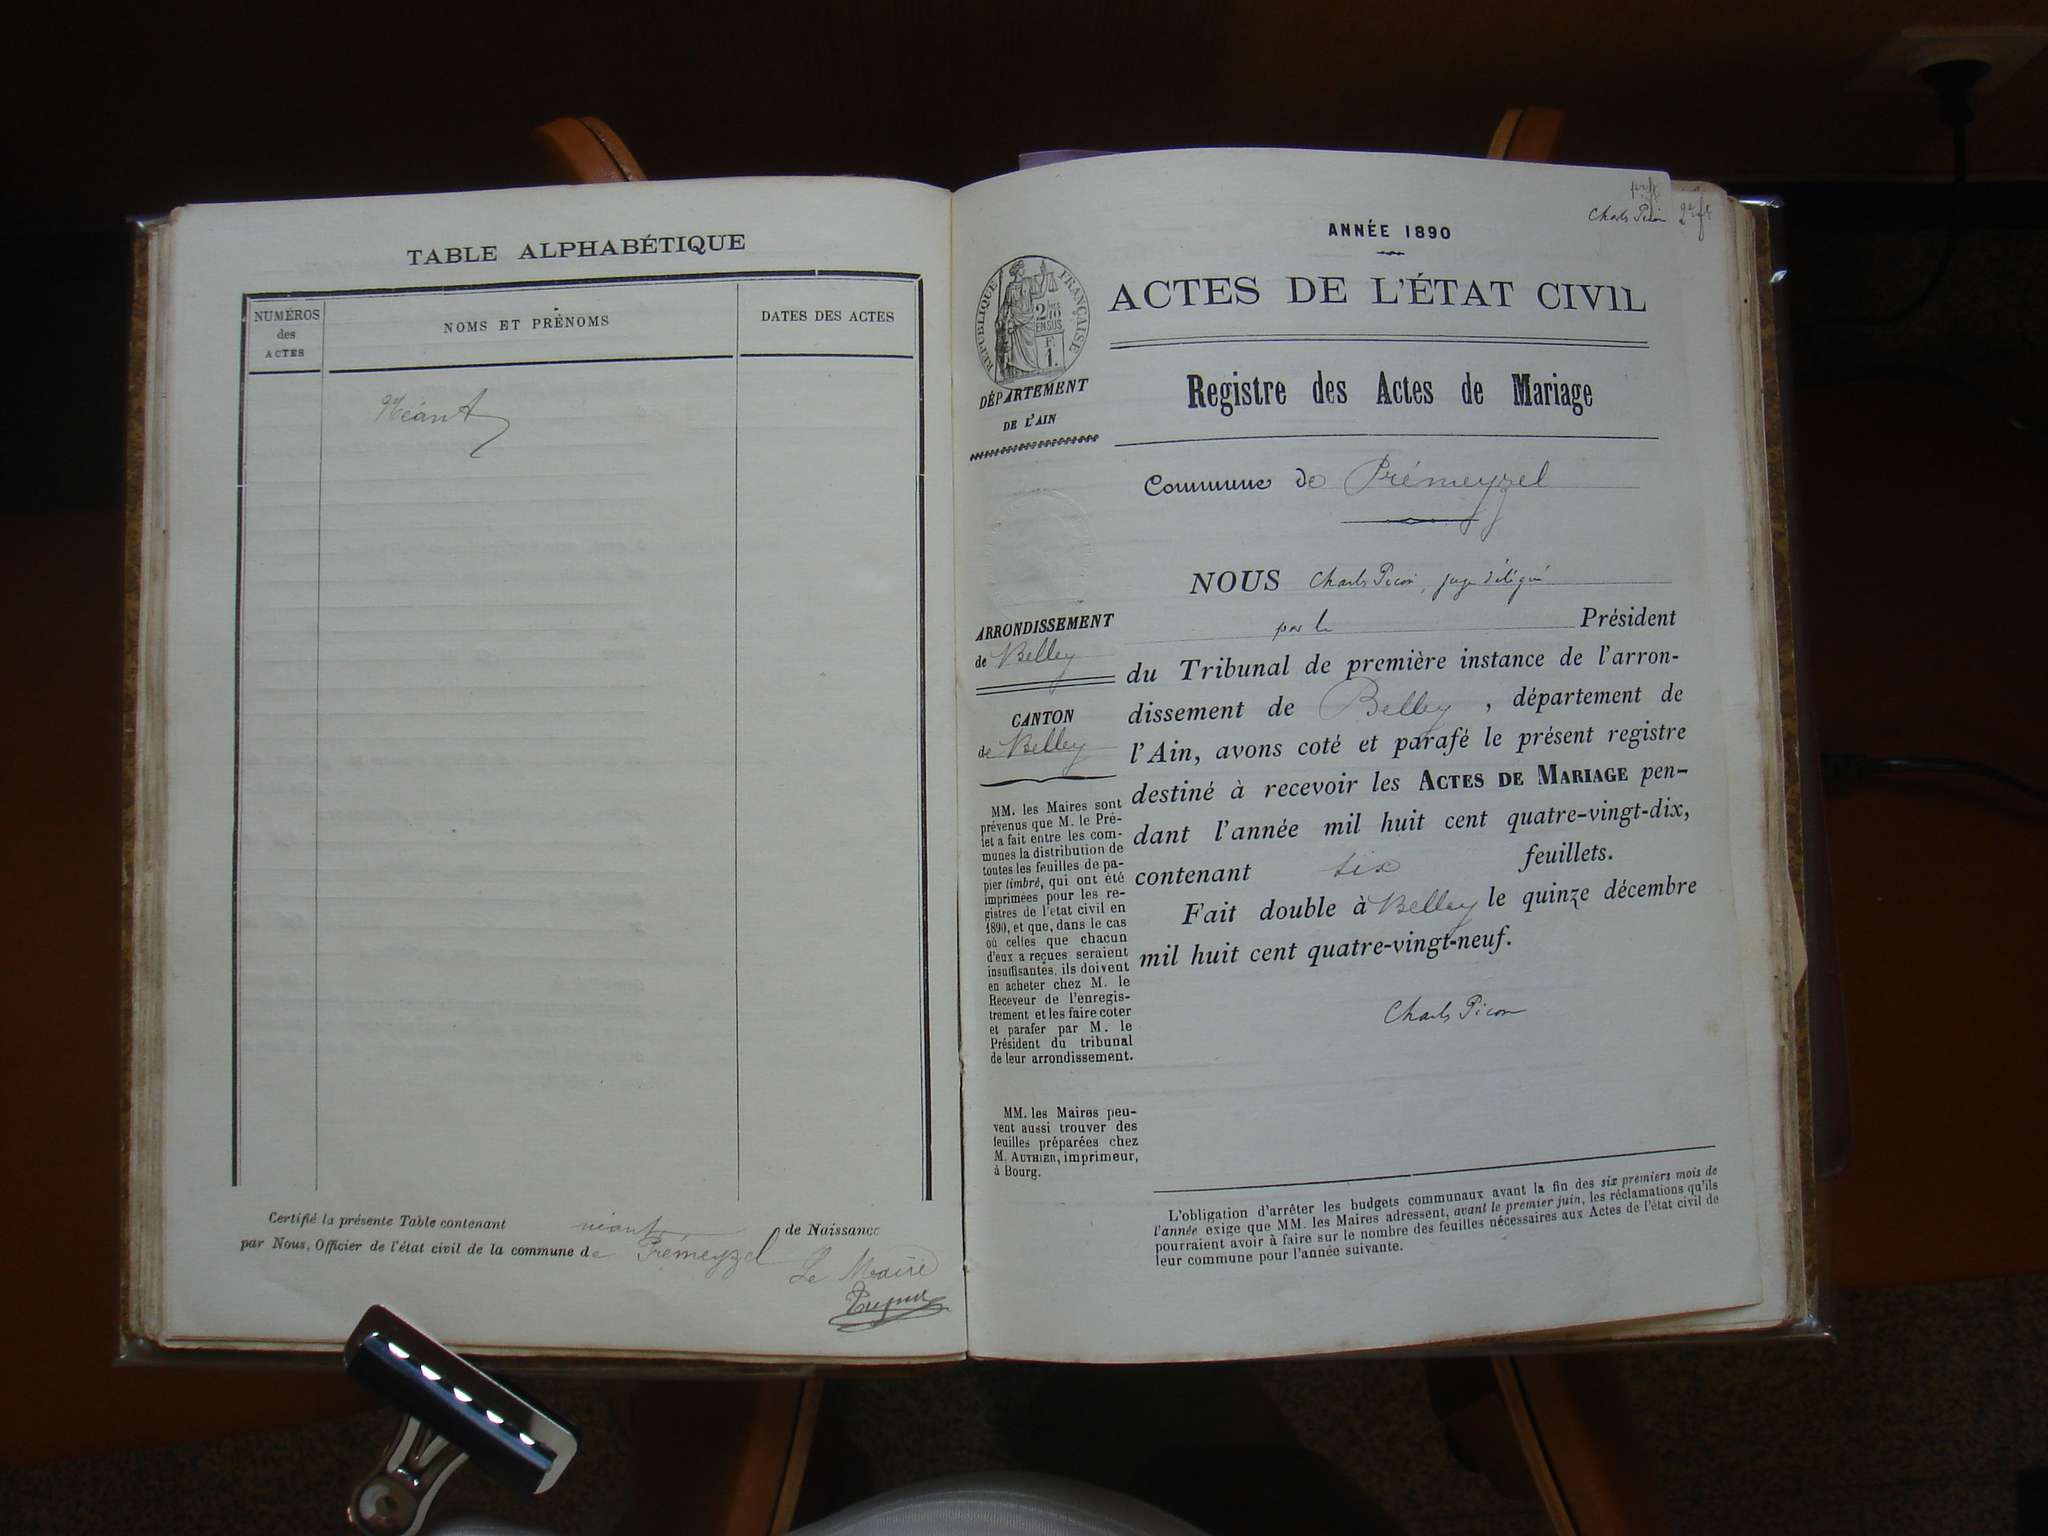 TABLE ALPHABÉTIQUE
NUMÉROS
des
ACTES
NOMS ET PRÉNOMS
DATES DES ACTES
Néant
Certifié la présente Table contenant néant de Naissance
par Nous, Officier de l'état civil de la commune de Prémeyzel
Le Maire
Charles Picon
ANNÉE 1890
RÉPUBLIQUE FRANÇAISE
2/10
EN SUS
F.
1.
ACTES DE L'ÉTAT CIVIL
DÉPARTEMENT
DE L'AIN
Registre des Actes de Mariage
Commune de Prémeyzel
ARRONDISSEMENT
de Belley
CANTON
de Belley
MM. les Maires sont
prévenus que M. le Pré-
fet a fait entre les com-
munes la distribution de
toutes les feuilles de pa-
pier timbré, qui ont été
imprimées pour les re-
gistres de l'état civil en
1890, et que, dans le cas
où celles que chacun
d'eux a reçues seraient
insuffisantes, ils doivent
en acheter chez M. le
Receveur de l'enregis-
trement et les faire coter
et parafer par M. le
Président du tribunal
de leur arrondissement.
MM. les Maires peu-
vent aussi trouver des
feuilles préparées chez
M. AUTHIER, imprimeur,
à Bourg.
NOUS Charles Picon, juge délégué
par le Président
du Tribunal de première instance de l'arron-
dissement de Belley, département de
l'Ain, avons coté et parafé le présent registre
destiné à recevoir les ACTES DE MARIAGE pen-
dant l'année mil huit cent quatre-vingt-dix,
contenant six feuillets.
Fait double à Belley le quinze décembre
mil huit cent quatre-vingt-neuf.
Charles Picon
L'obligation d'arrêter les budgets communaux avant la fin des six premiers mois de
l'année exige que MM. les Maires adressent, avant le premier juin, les réclamations qu'ils
pourraient avoir à faire sur le nombre des feuilles nécessaires aux Actes de l'état civil de
leur commune pour l'année suivante.